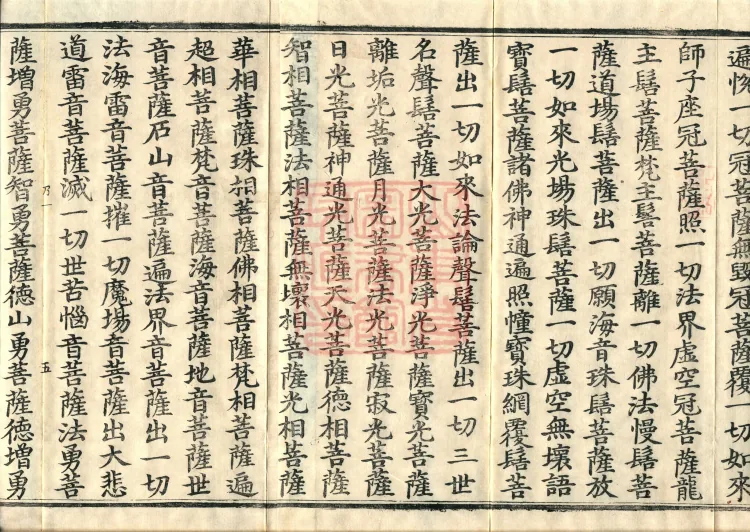 遍悅一切冠菩薩無毀冠菩薩覆一切如來
師子座冠菩薩照一切法界虛空冠菩薩龍
主髻菩薩梵主髻菩薩離一切佛法慢髻菩
薩道場髻菩薩出一切願海音珠髻菩薩放
一切如來光場珠髻菩薩一切虛空無壞語
寶髻菩薩諸佛神通遍照幢寶珠網覆髻菩
薩出一切如來法論聲髻菩薩出一切三世
名聲髻菩薩大光菩薩淨光菩薩寶光菩薩
離垢光菩薩月光菩薩法光菩薩寂光菩薩
日光菩薩神通光菩薩天光菩薩德相菩薩
智相菩薩法相菩薩無壞相菩薩光相菩薩
華相菩薩珠相菩薩佛相菩薩梵相菩薩遍
超相菩薩梵音菩薩海音菩薩地音菩薩世
音菩薩石山音菩薩遍法界音菩薩出一切
法海雷音菩薩摧一切魔場音菩薩出大悲
道雷音菩薩滅一切世苦惱音菩薩法勇菩
乃一 五
薩增勇菩薩智勇菩薩德山勇菩薩德增勇